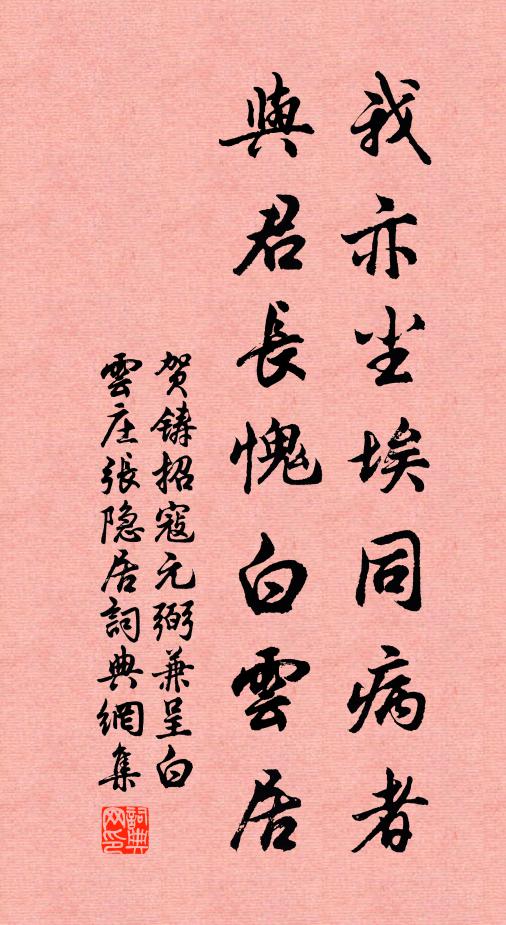 我亦尘埃同病者
與君長愧白雲居
贺铸招寇元弼兼呈白
雲庄張隐居詞典網集
詞典网印